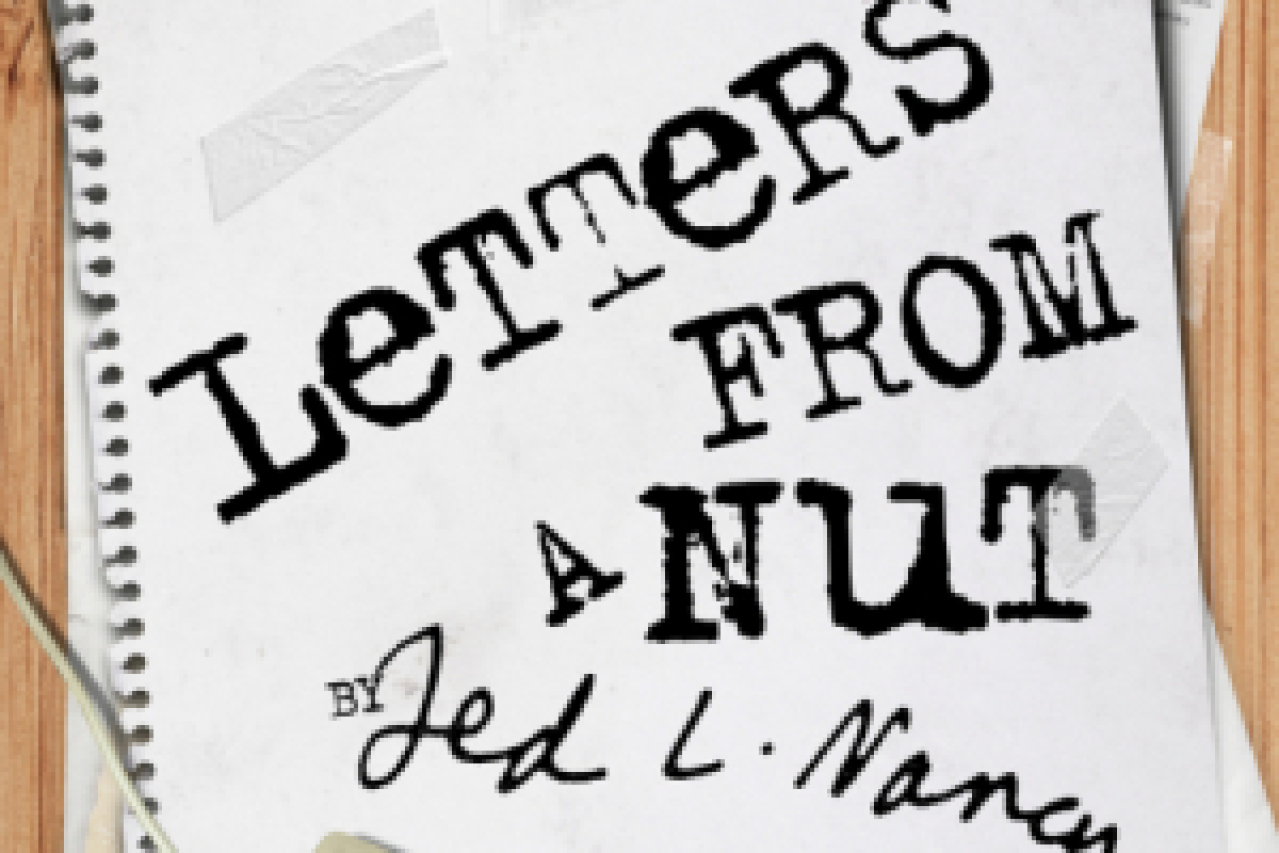 LeTTeRS
FROM
A NuT
BY Ted L. Nancy